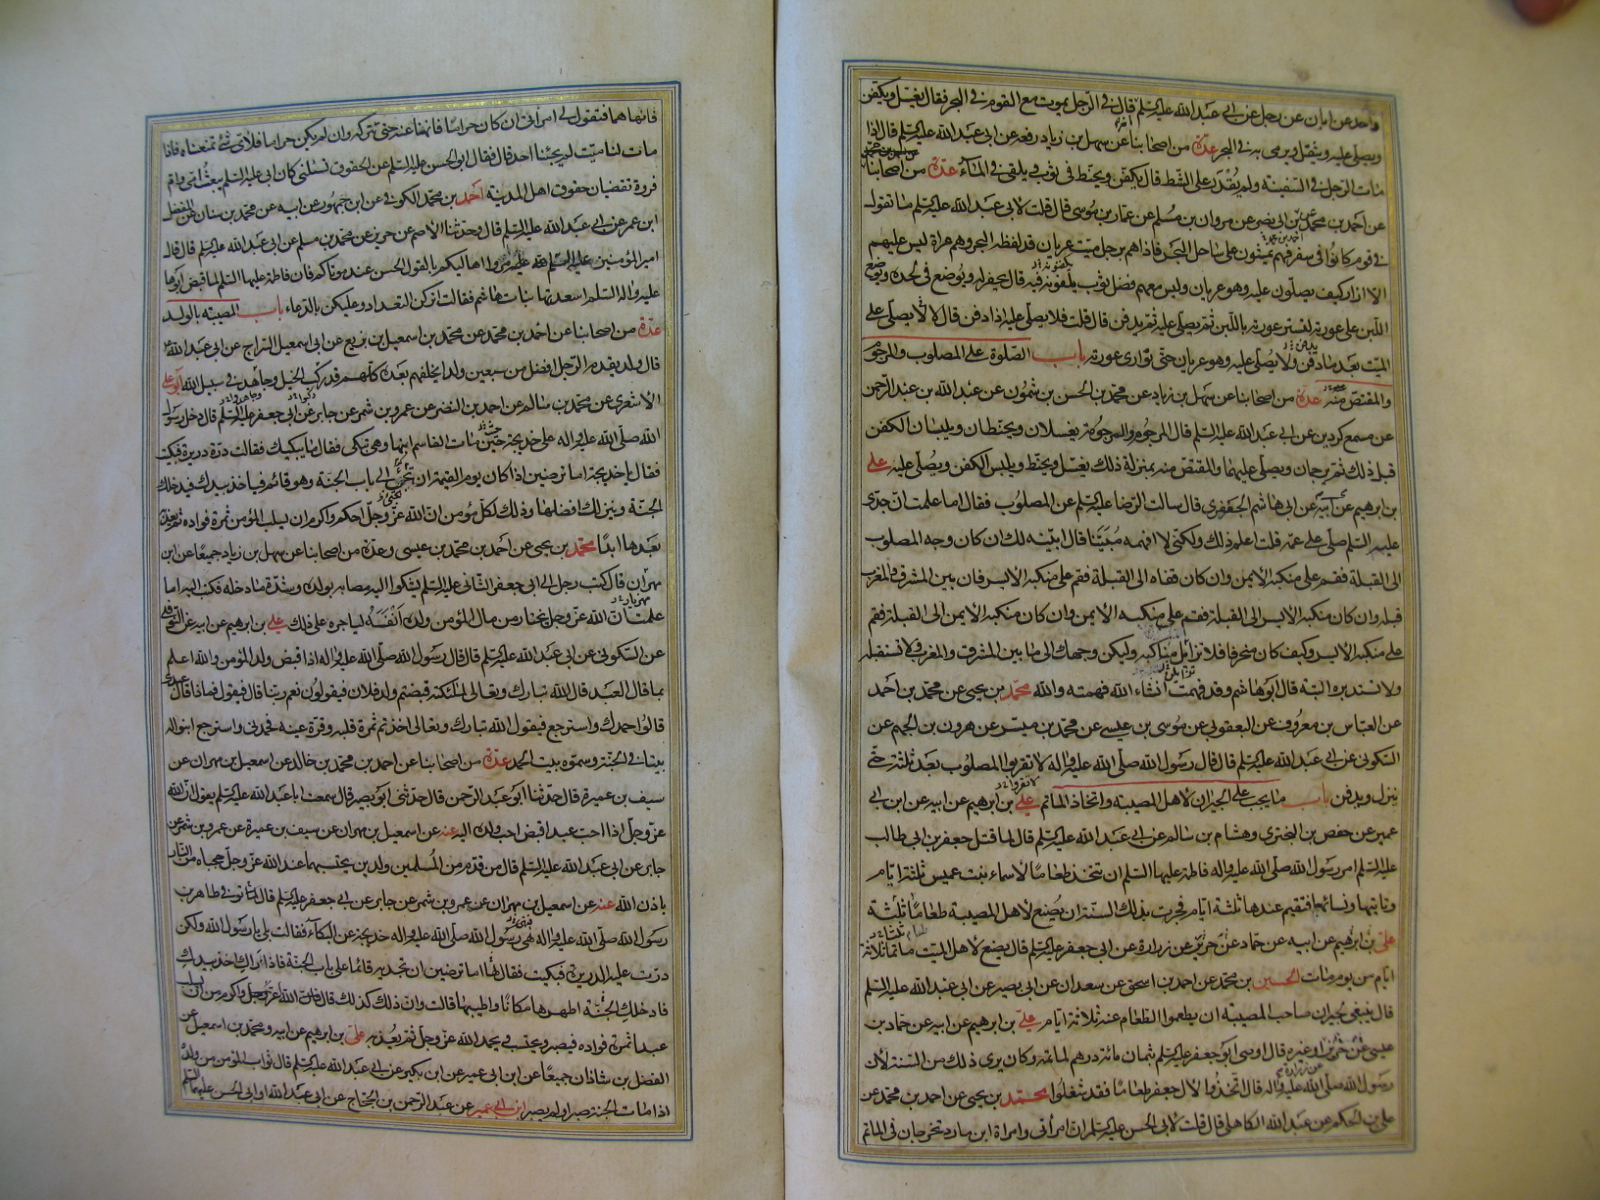 واحد عن ابان عن رجل عن ابي عبد الله عليه السلم قال في الرجل يموت مع القوم في البحر فقال يغسل ويكفن
ويصلى عليه ويثقل ويرمى به في البحر عدة من اصحابنا عن سهل بن زياد رفعه عن ابي عبد الله عليه السلم قال اذا
مات الرجل في السفينة ولم يقدر على الشط قال يكفن ويحنط في ثوب ويلقى في الماء عدة من اصحابنا
عن احمد بن محمد عن مروان بن مسلم عن عمار بن موسى قال قلت لابي عبد الله عليه السلم ما تقول
في قوم كانوا في سفر فهم يمشون على ساحل البحر فاذا هم برجل ميت عريان قد لفظه البحر وهم عراة ليس عليهم
الا ازار كيف يصلون عليه وهو عريان وليس معهم فضل ثوب يلفونه فيه قال يحفر له ويوضع في لحده ويوضع
اللبن على عورته لتستر عورته باللبن ثم يصلى عليه ثم يدفن قال قلت فلا يصلى عليه اذا دفن قال لا لا يصلى على
الميت بعد ما دفن ولا يصلى عليه وهو عريان حتى توارى عورته باب الصلوة على المصلوب والمرجوم
والمقتص منه عدة من اصحابنا عن سهل بن زياد عن محمد بن الحسن بن شمون عن عبد الله بن عبد الرحمن
عن مسمع كردين عن ابي عبد الله عليه السلم قال المرجوم والمرجومة يغسلان ويحنطان ويلبسان الكفن
قبل ذلك ثم يرجمان ويصلى عليهما والمقتص منه بمنزلة ذلك يغسل ويحنط ويلبس الكفن ويصلى عليه علي
بن ابرهيم عن ابيه عن ابي هاشم الجعفري قال سالت الرضا عليه السلم عن المصلوب فقال اما علمت ان جدي
عليه السلم صلى على عمه قلت اعلم ذلك ولكني لا افهمه مبينا قال ابينه لك ان كان وجه المصلوب
الى القبلة فقم على منكبه الايمن وان كان قفاه الى القبلة فقم على منكبه الايسر فان بين المشرق والمغرب
قبلة وان كان منكبه الايسر الى القبلة فقم على منكبه الايمن وان كان منكبه الايمن الى القبلة فقم
على منكبه الايسر وكيف كان منحرفا فلا تزايل مناكبه وليكن وجهك الى ما بين المشرق والمغرب ولا تستقبله
ولا تستدبره البتة قال ابو هاشم وقد فهمت انشاء الله فهمته والله محمد بن يحيى عن محمد بن احمد
عن العباس بن معروف عن اليعقوبي عن موسى بن عيسى عن محمد بن ميسر عن هرون بن الجهم عن
السكوني عن ابي عبد الله عليه السلم قال قال رسول الله صلى الله عليه واله لا تقربوا المصلوب بعد ثلثة حتى
ينزل ويدفن باب ما يجب على الجيران لاهل المصيبة واتخاذ الماتم علي بن ابرهيم عن ابيه عن ابن ابي
عمير عن حفص بن البختري وهشام بن سالم عن ابي عبد الله عليه السلم قال لما قتل جعفر بن ابي طالب
عليه السلم امر رسول الله صلى الله عليه واله فاطمة عليها السلم ان تتخذ طعاما لاسماء بنت عميس ثلثة ايام
وتاتيها ونسائها فتقيم عندها ثلثة ايام فجرت بذلك السنة ان يصنع لاهل المصيبة طعاما ثلثة
علي بن ابرهيم عن ابيه عن حماد عن حريز عن زرارة عن ابي جعفر عليه السلم قال يصنع لاهل الميت ماتما ثلاثة
ايام من يوم مات الحسين بن محمد عن احمد بن اسحق عن سعدان عن ابي بصير عن ابي عبد الله عليه السلم
قال ينبغي لجيران صاحب المصيبة ان يطعموا الطعام عنه ثلاثة ايام علي بن ابرهيم عن ابيه عن حماد بن
عيسى عن حريز او غيره قال اوصى ابو جعفر عليه السلم بثمان مائة درهم لماتمه وكان يرى ذلك من السنة لان
رسول الله صلى الله عليه واله قال اتخذوا لال جعفر طعاما فقد شغلوا محمد بن يحيى عن احمد بن محمد عن
علي بن الحكم عن عبد الله الكاهلي قال قلت لابي الحسن عليه السلم ان امراتي وامراة ابن مارد تخرجان في الماتم
فانهاهما فتقول لي امراتي ان كان حراما فانهنا عنه حتى نتركه وان لم يكن حراما فلاي شيء تمنعناه فاذا
مات لنا ميت لم يجئنا احد قال فقال ابو الحسن عليه السلم عن الحقوق تسئلني كان ابي عليه السلم يبعث امي وام
فروة تقضيان حقوق اهل المدينة احمد بن محمد الكوفي عن ابن جمهور عن ابيه عن محمد بن سنان عن المفضل
ابن عمر عن ابي عبد الله عليه السلم قال وحدثنا الاصم عن حريز عن محمد بن مسلم عن ابي عبد الله عليه السلم قال قال
امير المؤمنين عليه السلم مروا اهاليكم بالقول الحسن عند موتاكم فان فاطمة عليها السلم لما قبض ابوها
عليه واله السلم اسعدتها بنات هاشم فقالت اتركن التعداد وعليكن بالدعاء باب المصيبة بالولد
عدة من اصحابنا عن احمد بن محمد عن محمد بن اسمعيل بن بزيع عن ابي اسمعيل السراج عن ابي عبد الله
قال ولد يقدمه الرجل افضل من سبعين ولدا يخلفهم بعده كلهم قد ركب الخيل وجاهد في سبيل الله ابو علي
الاشعري عن محمد بن سالم عن احمد بن النضر عن عمرو بن شمر عن جابر عن ابي جعفر عليه السلم قال دخل رسول
الله صلى الله عليه واله على خديجة حين مات القاسم ابنها وهي تبكي فقال ما يبكيك فقالت درت دريرة فبكيت
فقال يا خديجة اما ترضين اذا كان يوم القيمة ان تجئي الى باب الجنة وهو قائم فياخذ بيدك فيدخلك
الجنة وينزلك افضلها وذلك لكل مؤمن ان الله عز وجل احكم واكرم ان يسلب المؤمن ثمرة فواده ثم يعذبه
بعدها ابدا محمد بن يحيى عن احمد بن محمد بن عيسى وعدة من اصحابنا عن سهل بن زياد جميعا عن ابن
مهران قال كتب رجل الى ابي جعفر الثاني عليه السلم يشكوا اليه مصابه بولده وشدة ما دخله فكتب اليه اما
علمت ان الله عز وجل يختار من مال المؤمن ولده انفسه لياجره على ذلك علي بن ابرهيم عن ابيه عن النوفلي
عن السكوني عن ابي عبد الله عليه السلم قال قال رسول الله صلى الله عليه واله اذا قبض ولد المؤمن والله اعلم
بما قال العبد قال الله تبارك وتعالى لملئكته قبضتم ولد فلان فيقولون نعم ربنا قال فيقول فما ذا قال عبدي
قالوا حمدك واسترجع فيقول الله تبارك وتعالى اخذتم ثمرة قلبه وقرة عينه فحمدني واسترجع ابنوا له
بيتا في الجنة وسموه بيت الحمد عدة من اصحابنا عن احمد بن محمد بن خالد عن اسمعيل بن مهران عن
سيف بن عميرة قال حدثنا ابو عبد الرحمن قال حدثني ابو بصير قال سمعت ابا عبد الله عليه السلم يقول ان الله
عز وجل اذا احب عبدا قبض احب ولده اليه عنه عن اسمعيل بن مهران عن سيف بن عميرة عن عمرو بن شمر عن
جابر عن ابي عبد الله عليه السلم قال من قدم من المسلمين ولدين يحتسبهما عند الله عز وجل حجباه من النار
باذن الله عنه عن اسمعيل بن مهران عن عمرو بن شمر عن جابر عن ابي جعفر عليه السلم قال لما توفي طاهر بن
رسول الله صلى الله عليه واله نهى رسول الله صلى الله عليه واله خديجة عن البكاء فقالت بلى يا رسول الله ولكن
درت عليه الدريرة فبكيت فقال لها اما ترضين ان تجديه قائما على باب الجنة فاذا راك اخذ بيدك
فادخلك الجنة اطهرها مكانا واطيبها قالت وان ذلك كذلك قال فان الله اعز وجل واكرم من ان يسلب
عبدا ثمرة فواده فيصبر ويحتسب ويحمد الله عز وجل ثم يعذبه علي بن ابرهيم عن ابيه ومحمد بن اسمعيل عن
الفضل بن شاذان جميعا عن ابن ابي عمير عن ابن بكير عن ابي عبد الله عليه السلم قال ثواب المؤمن من ولده
اذا مات الجنة صبر او لم يصبر ابن ابي عمير عن عبد الرحمن بن الحجاج عن ابي عبد الله او ابي الحسن عليهما السلم